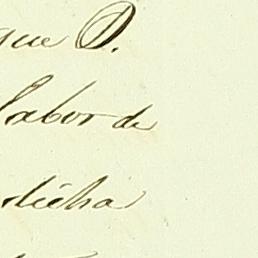 que D.
labor de
dicha